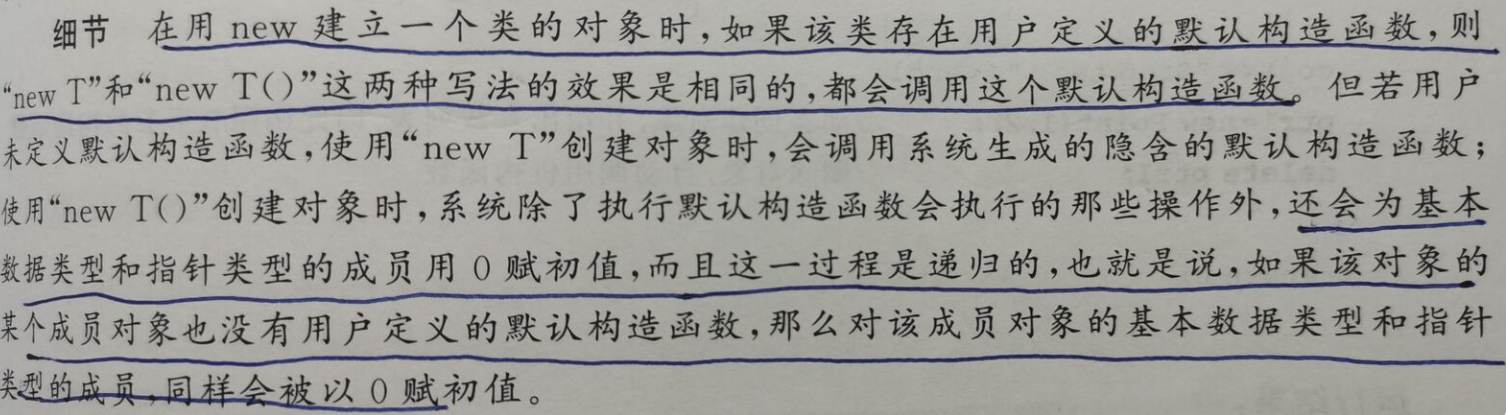 细节 在用 new 建立一个类的对象时,如果该类存在用户定义的默认构造函数,则
“new T”和“new T()”这两种写法的效果是相同的,都会调用这个默认构造函数。但若用户
未定义默认构造函数,使用“new T”创建对象时,会调用系统生成的隐含的默认构造函数;
使用“new T()”创建对象时,系统除了执行默认构造函数会执行的那些操作外,还会为基本
数据类型和指针类型的成员用 0 赋初值,而且这一过程是递归的,也就是说,如果该对象的
某个成员对象也没有用户定义的默认构造函数,那么对该成员对象的基本数据类型和指针
类型的成员,同样会被以 0 赋初值。